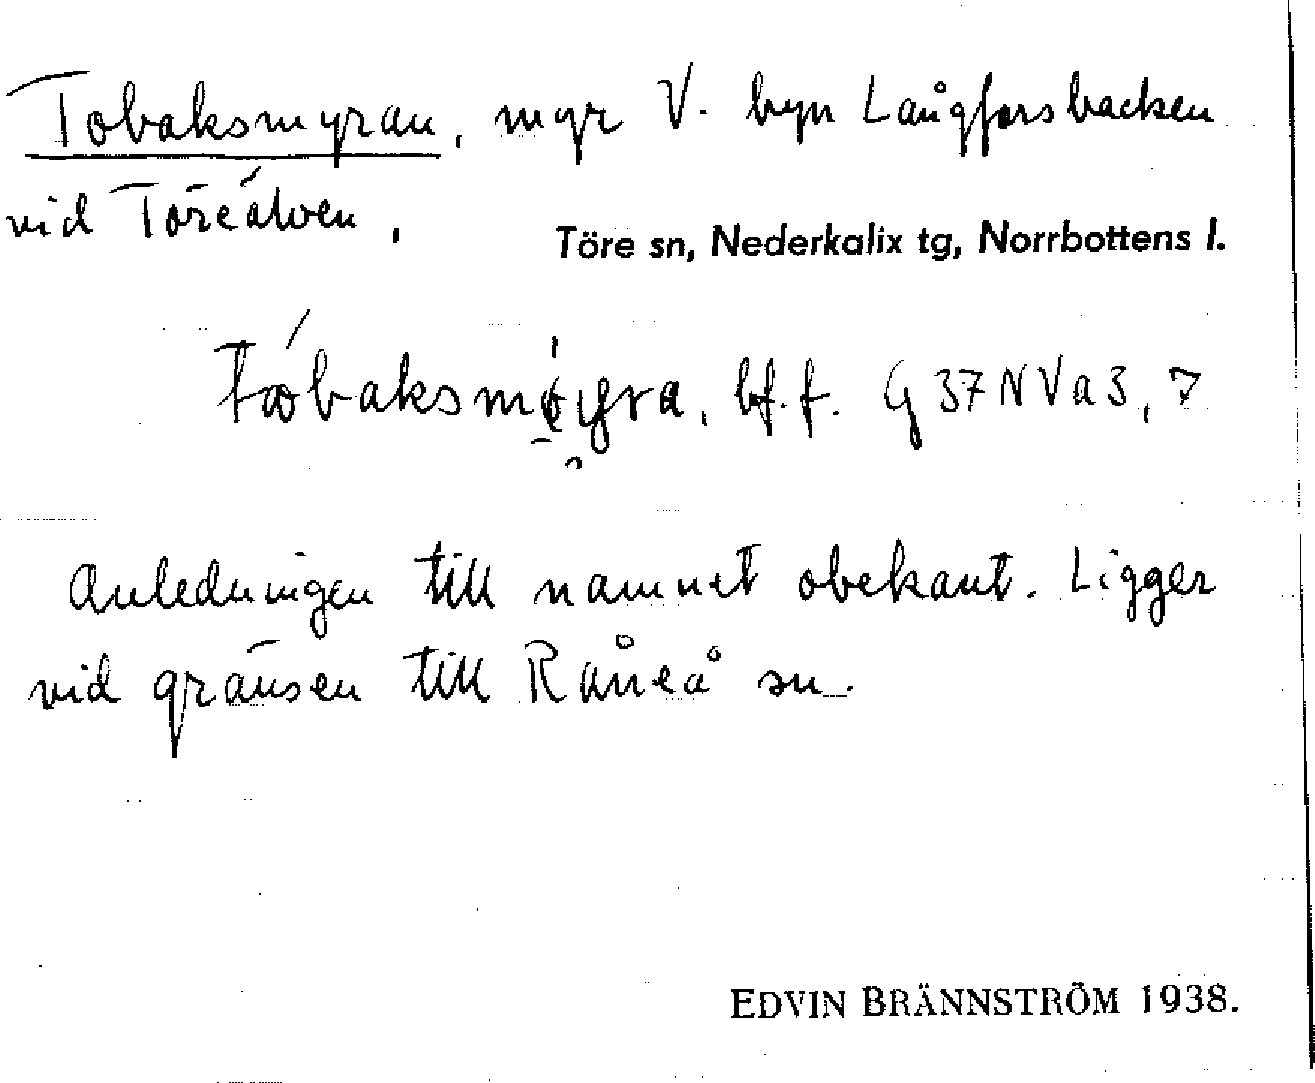 Tobaksmyran, myr V. byn Långforsbacken
vid Töreälven,
Töre sn, Nederkalix tg, Norrbottens l.
bf. f. G 37 N V a 3, 7
Anledningen till namnet obekant. Ligger
vid gränsen till Råneå sn.
EDVIN BRÄNNSTRÖM 1938.